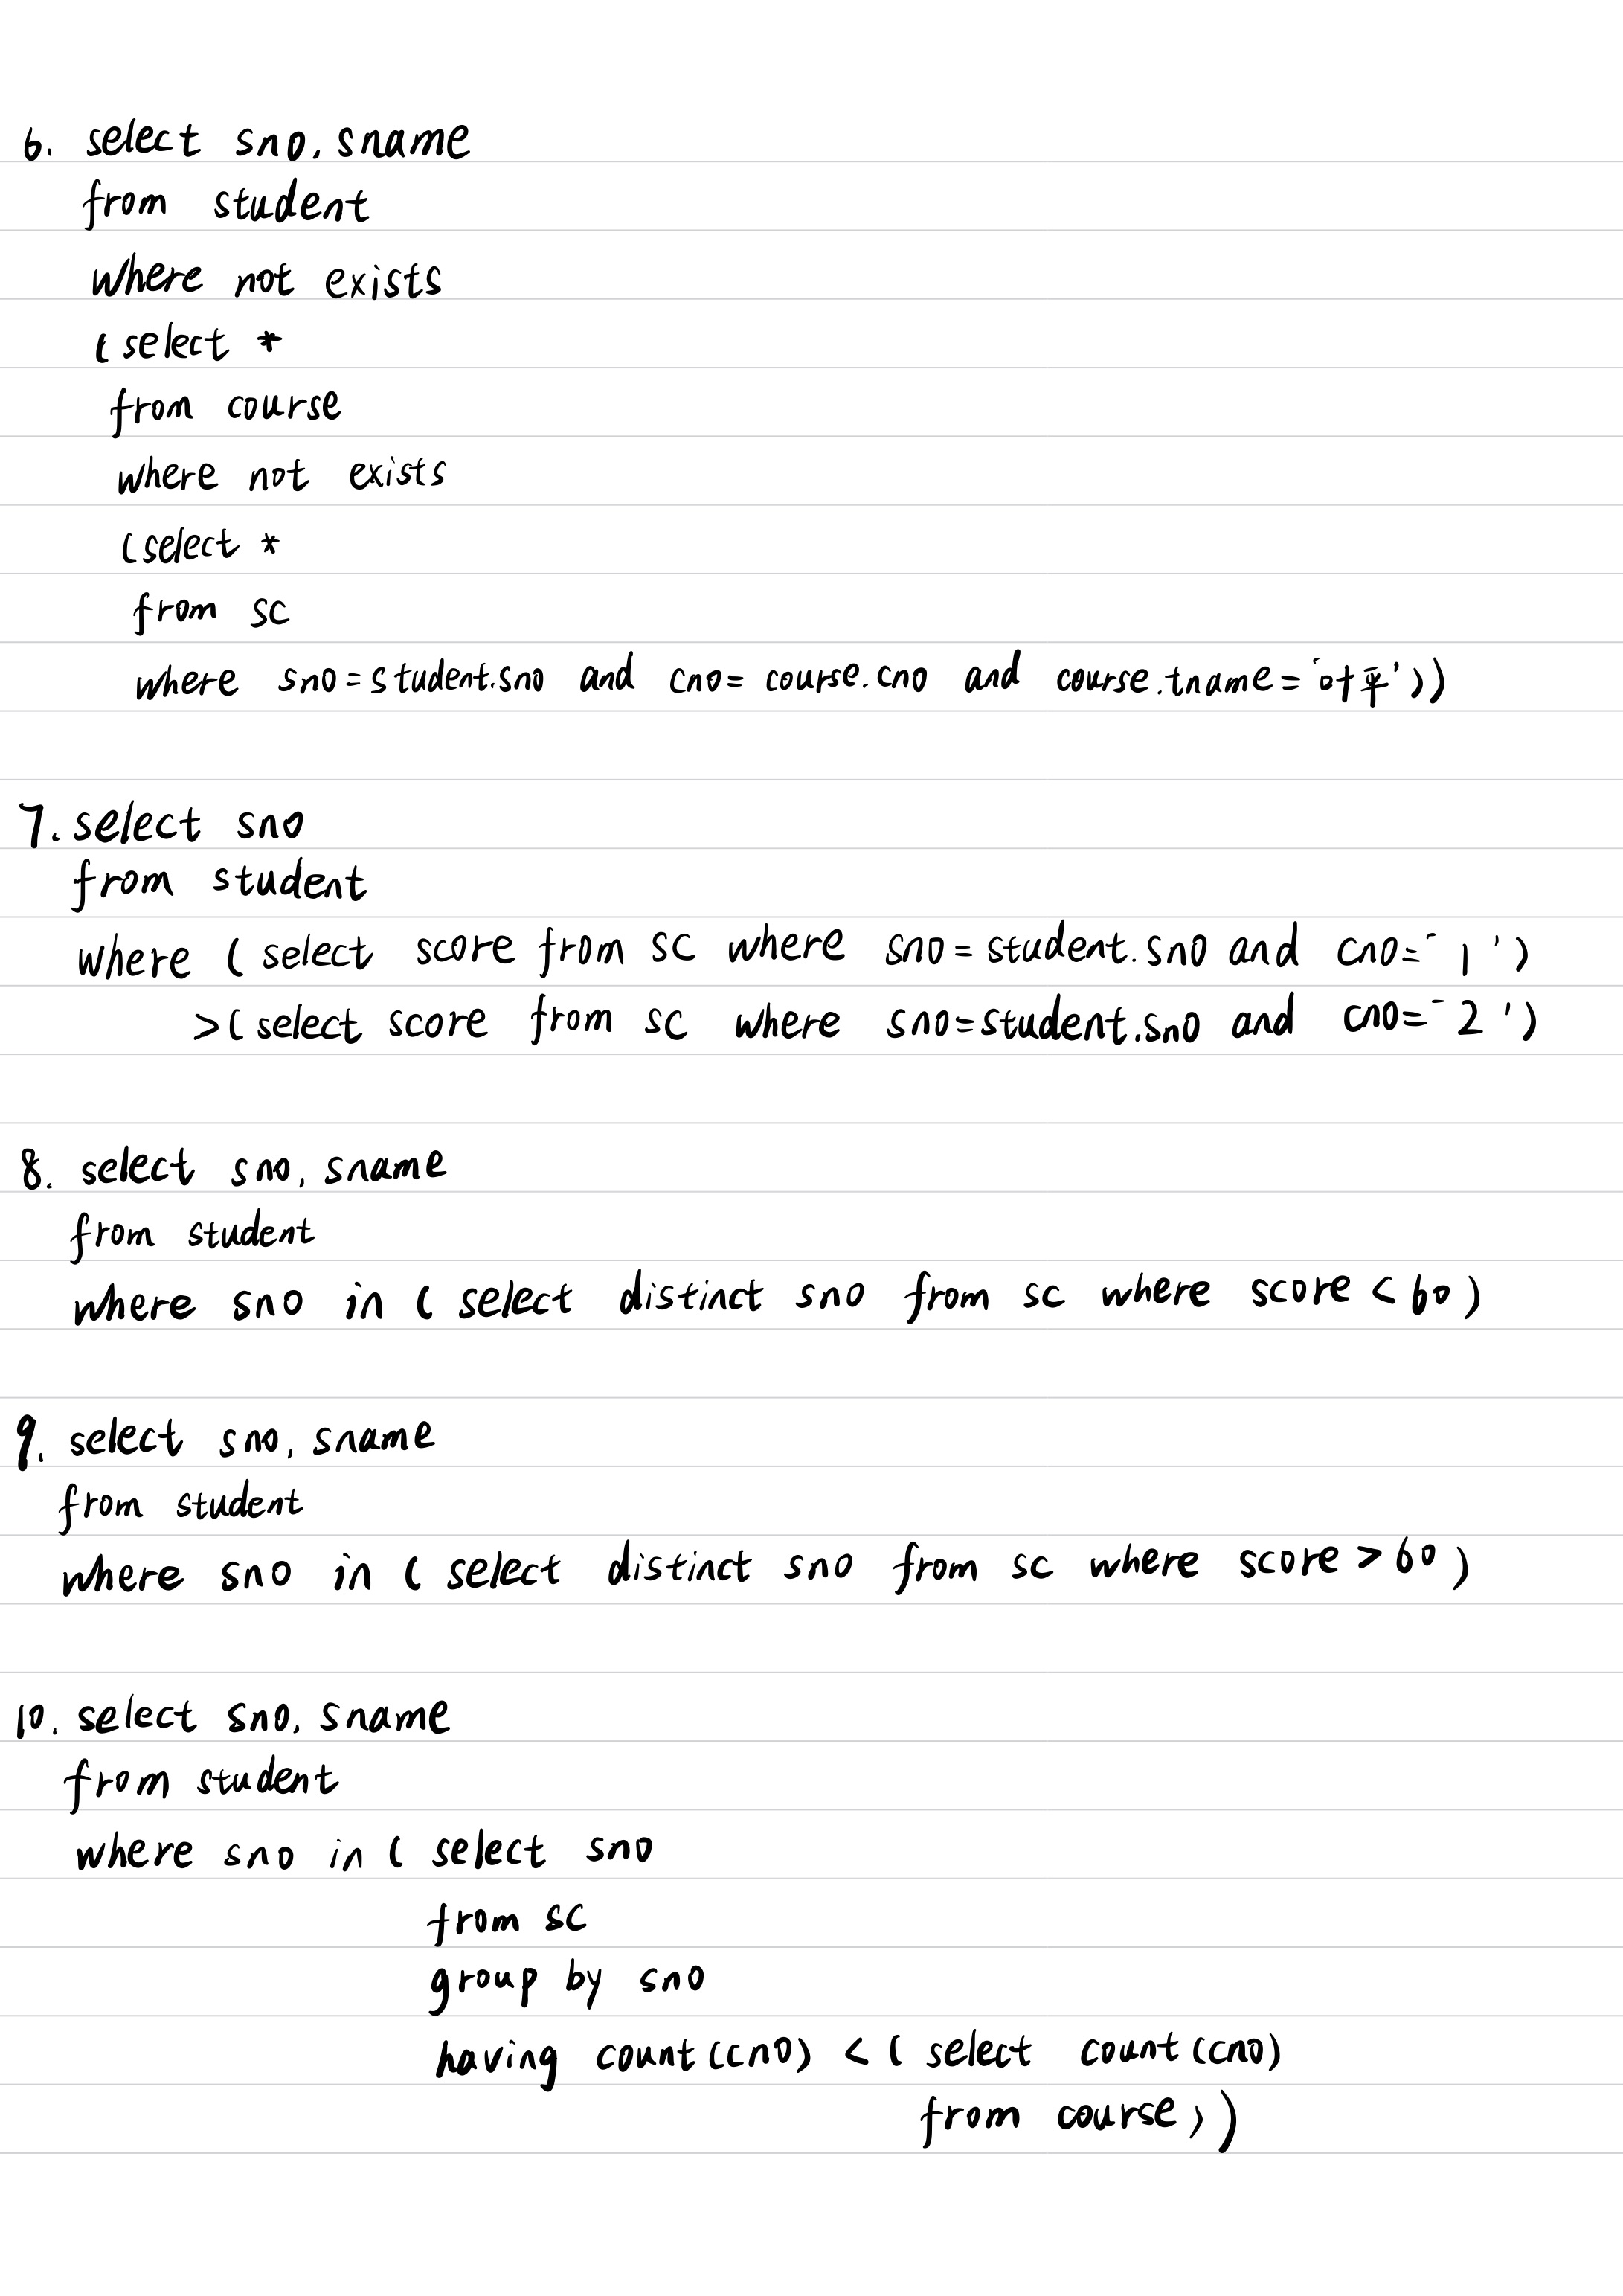 6. select sno, sname
from student
where not exists
(select *
from course
where not exists
(select *
from sc
where sno=student.sno and cno=course.cno and course.tname='叶平'))
7. select sno
from student
where (select score from sc where sno=student.sno and cno='1')
>(select score from sc where sno=student.sno and cno='2')
8. select sno, sname
from student
where sno in (select distinct sno from sc where score<60)
9. select sno, sname
from student
where sno in (select distinct sno from sc where score>60)
10. select sno, sname
from student
where sno in (select sno
from sc
group by sno
having count(cno) < (select count(cno)
from course))